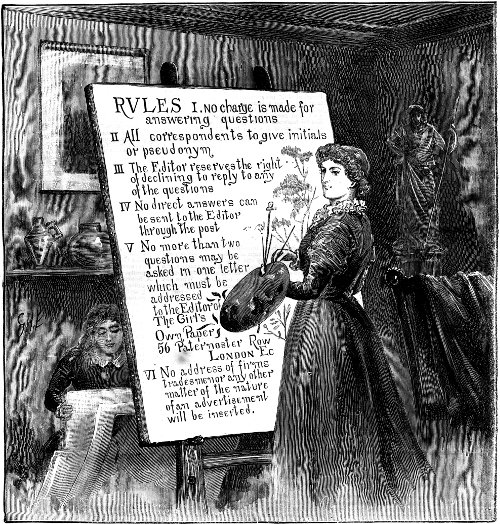 RVLES I. No charge is made for
answering questions
II All correspondents to give initials
or pseudonym
III The Editor reserves the right
of declining to reply to any
of the questions
IV No direct answers can
be sent to the Editor
through the post
V No more than two
questions may be
asked in one letter
which must be
addressed
to the Editor of
The Girl's
Own Paper
56 Paternoster Row
London E.C
VI No address of firms
tradesmen or any other
matter of the nature
of an advertisement
will be inserted.